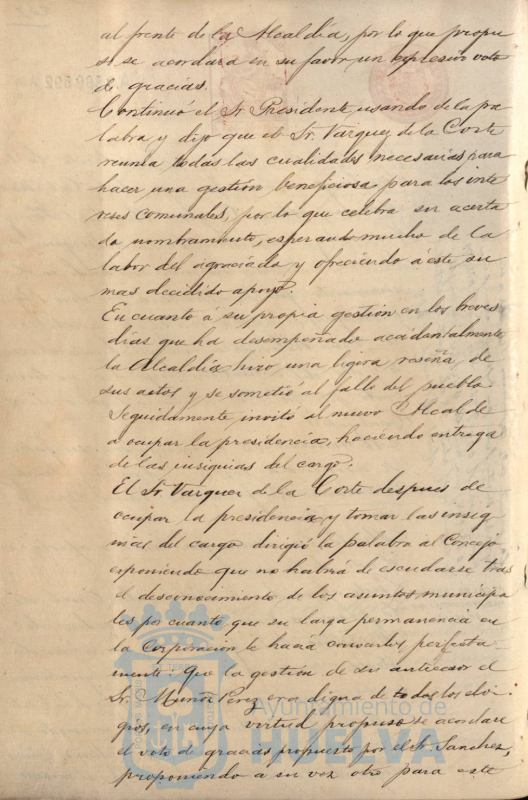 al frente de la Alcaldía, por lo que propu
so se acordara en su favor un expresivo voto
de gracias.
Continuó el Sr. Presidente, usando de la pa
labra y dijo que el Sr. Vazquez de la Corte
reunia todas las cualidades necesarias para
hacer una gestión beneficiosa para los inte
reses comunales, por lo que celebra su acerta
do nombramiento, esperando mucho de la
labor del agraciado y ofreciendo á este su
mas decidido apoyo.
En cuanto á su propia gestión en los breves
dias que ha desempeñado accidentalmente
la Alcaldia hizo una ligera reseña de
sus actos y se sometió al fallo del pueblo.
Seguidamente invitó al nuevo Alcalde
a ocupar la presidencia, haciendo entrega
de las insignias del cargo.
El Sr. Vazquez de la Corte despues de
ocupar la presidencia y tomar las insig
nias del cargo dirigió la palabra al Concejo
exponiendo que no habrá de escudarse tras
el desconocimiento de los asuntos municipa
les por cuanto que su larga permanencia en
la Corporación le hacia conocerlos perfecta-
mente: Que la gestión de su antecesor el
Sr. Muñoz Perez era digna de todos los elo-
gios, en cuya virtud propuso se acordare
el voto de gracias propuesto por el Sr. Sanchez,
proponiendo a su vez otro para este
Ayuntamiento de
HUELVA